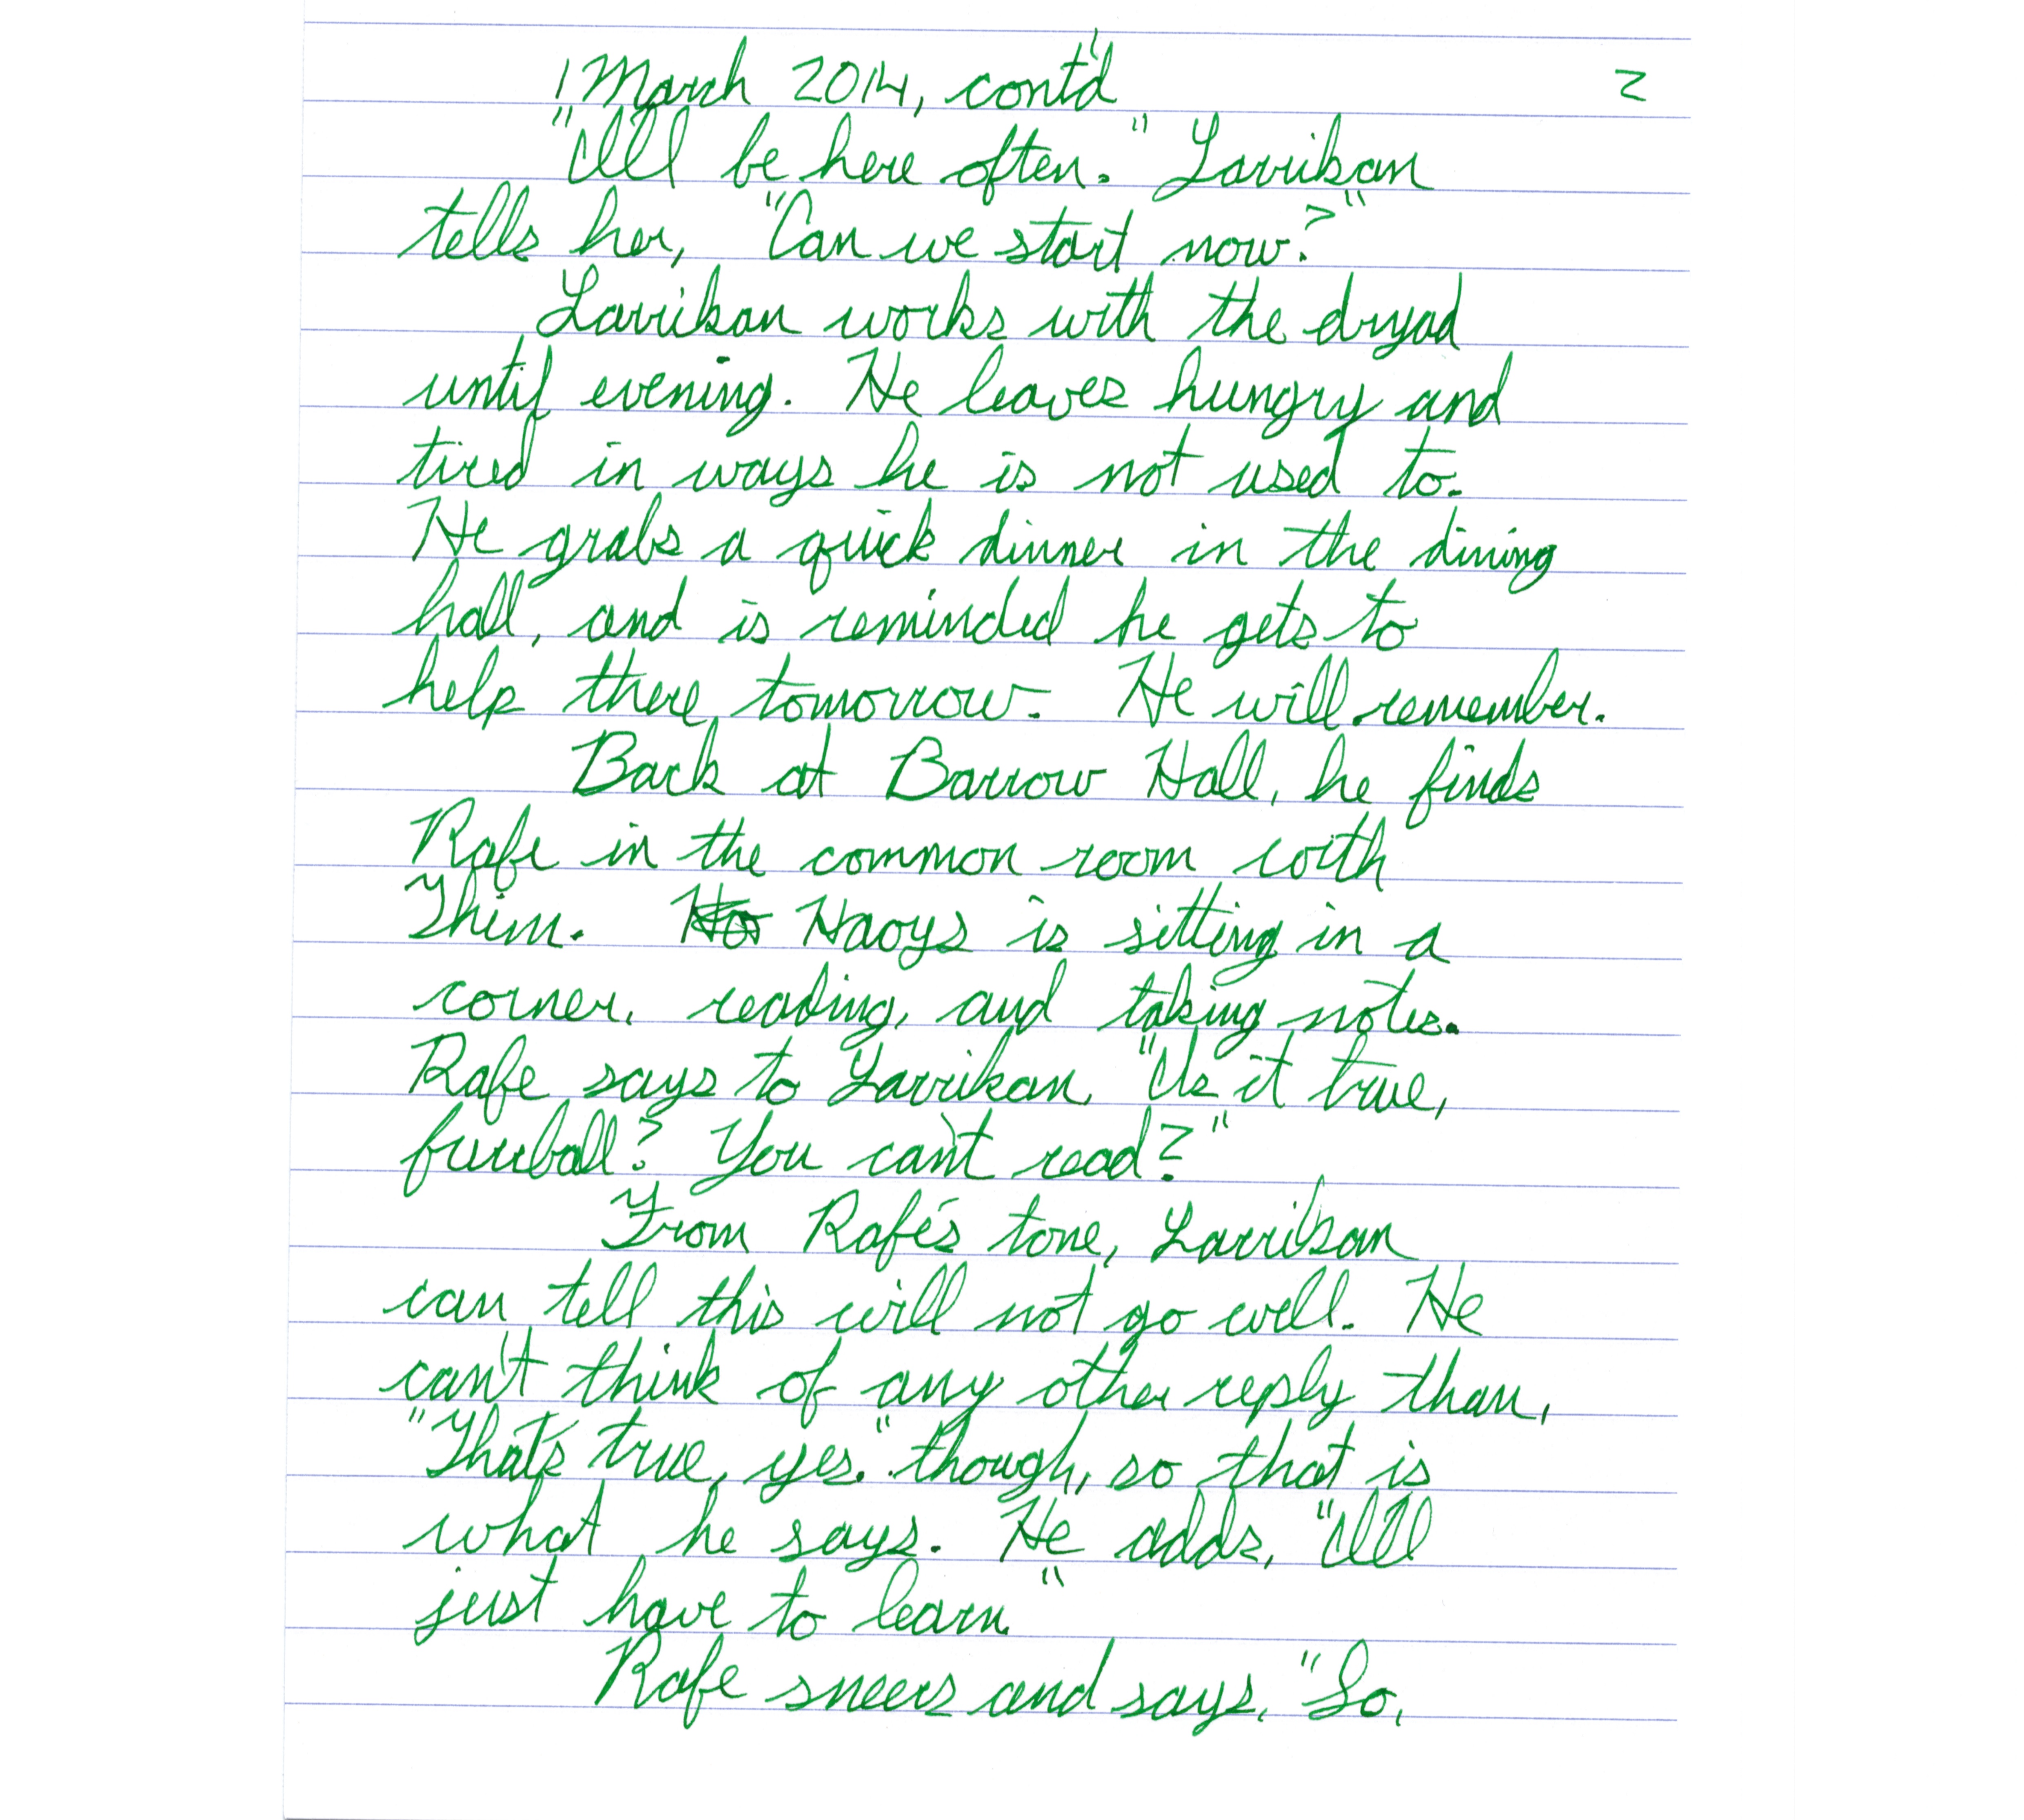 1 March 2014, cont'd 2
"I'll be here often." Larrikan
tells her, "Can we start now?"
Larrikan works with the dryad
until evening. He leaves hungry and
tired in ways he is not used to.
He grabs a quick dinner in the dining
hall, and is reminded he gets to
help there tomorrow. He will remember.
Back at Barrow Hall, he finds
Rafe in the common room with
Thim. Haoys is sitting in a
corner, reading, and taking notes.
Rafe says to Larrikan, "Is it true,
furrball? You can't read?"
From Rafe's tone, Larrikan
can tell this will not go well. He
can't think of any other reply than,
"That's true, yes." though, so that is
what he says. He adds, "I'll
just have to learn."
Rafe sneers and says, "So,